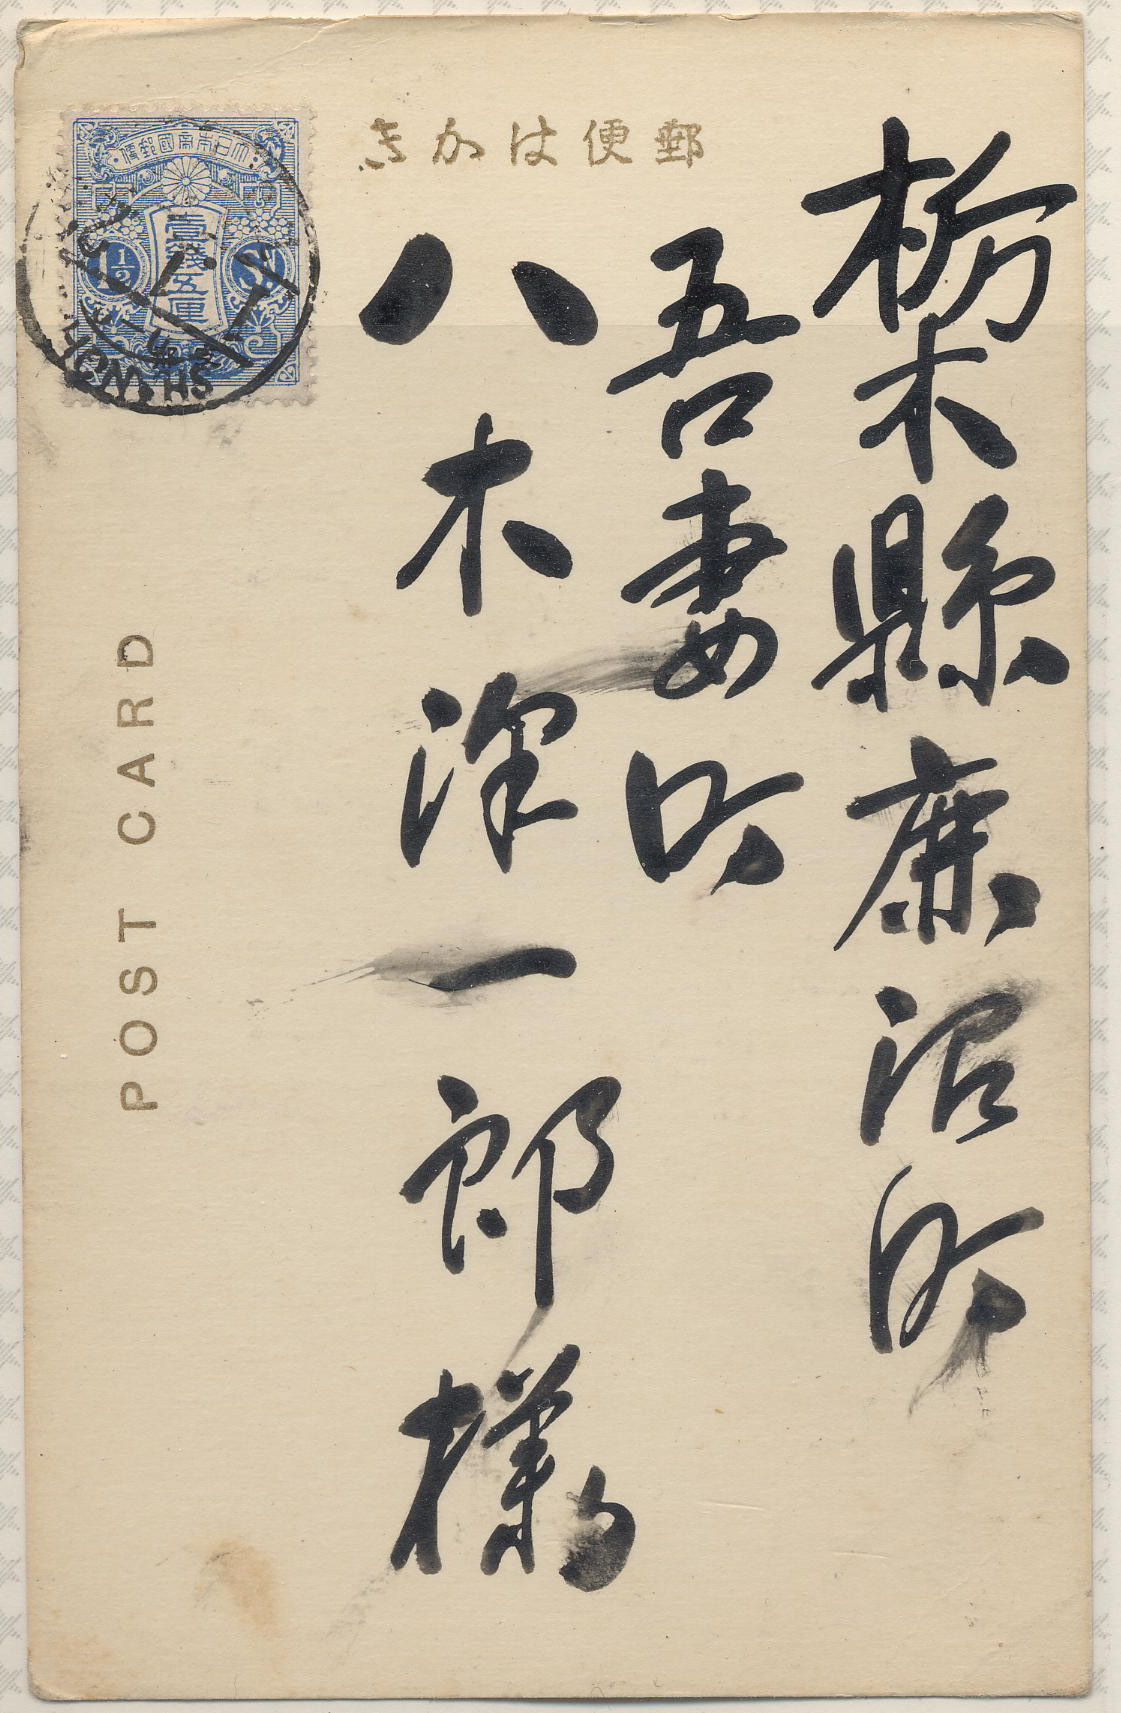 郵便はかき
大日本帝國郵便
壹錢五厘
1½
Sn
栃木縣鹿沼町
吾妻町
八木澤一郎様
POST CARD